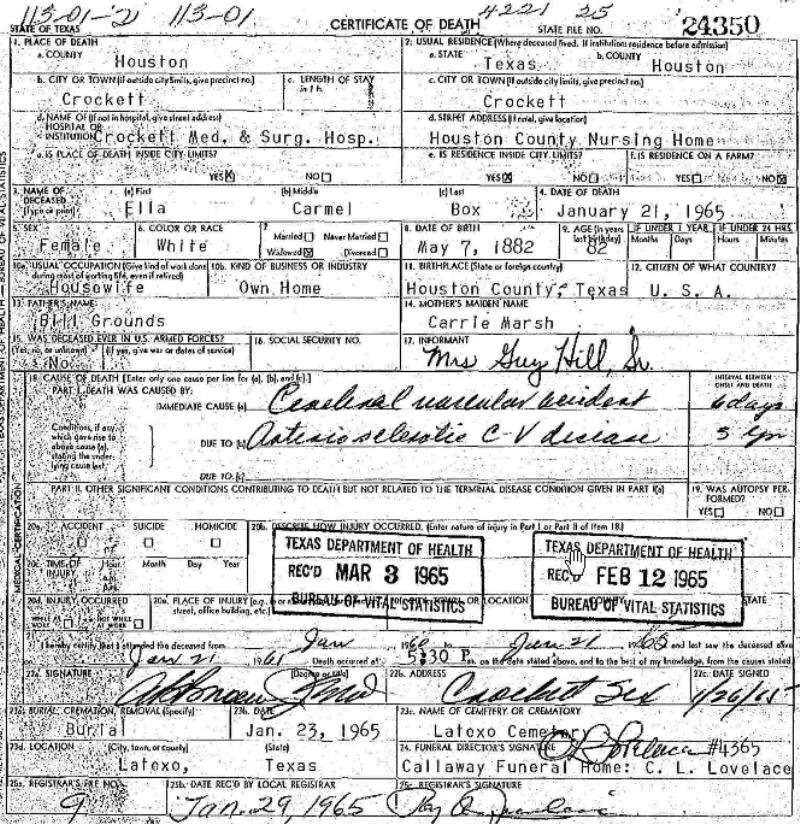 113-01-2 113-01 4221 25
STATE OF TEXAS CERTIFICATE OF DEATH STATE FILE NO. 24350
1. PLACE OF DEATH
a. COUNTY
Houston
2. USUAL RESIDENCE (Where deceased lived. If institution: residence before admission)
a. STATE b. COUNTY
Texas Houston
b. CITY OR TOWN (If outside city limits, give precinct no.) c. LENGTH OF STAY
Crockett
c. CITY OR TOWN (If outside city limits, give precinct no.)
Crockett
d. NAME OF (If not in hospital, give street address)
HOSPITAL OR
INSTITUTION Crockett Med. & Surg. Hosp.
d. STREET ADDRESS (If rural, give location)
Houston County Nursing Home
e. IS PLACE OF DEATH INSIDE CITY LIMITS?
YES☒ NO☐
e. IS RESIDENCE INSIDE CITY LIMITS? f. IS RESIDENCE ON A FARM?
YES☒ NO☐ YES☐ NO☒
3. NAME OF (a) First (b) Middle (c) Last 4. DATE OF DEATH
DECEASED
(Type or print) Ella Carmel Box January 21, 1965
5. SEX 6. COLOR OR RACE 7. Married☐ Never Married☐ 8. DATE OF BIRTH 9. AGE (In years last birthday) IF UNDER 1 YEAR IF UNDER 24 HRS.
Months Days Hours Minutes
Female White Widowed☒ Divorced☐ May 7, 1882 82
10a. USUAL OCCUPATION (Give kind of work done during most of working life, even if retired) 10b. KIND OF BUSINESS OR INDUSTRY 11. BIRTHPLACE (State or foreign country) 12. CITIZEN OF WHAT COUNTRY?
Housewife Own Home Houston County, Texas U. S. A.
13. FATHER'S NAME 14. MOTHER'S MAIDEN NAME
Bill Grounds Carrie Marsh
15. WAS DECEASED EVER IN U.S. ARMED FORCES? 16. SOCIAL SECURITY NO. 17. INFORMANT
(Yes, no, or unknown) (If yes, give war or dates of service)
No Mrs Guy Hill, Sr.
18. CAUSE OF DEATH [Enter only one cause per line for (a), (b), and (c).] INTERVAL BETWEEN ONSET AND DEATH
PART I. DEATH WAS CAUSED BY:
IMMEDIATE CAUSE (a) Cerebral vascular accident 6 days
Conditions, if any, which gave rise to above cause (a), stating the underlying cause last.
DUE TO (b) Arteriosclerotic C-V disease 5 yrs
DUE TO (c)
PART II. OTHER SIGNIFICANT CONDITIONS CONTRIBUTING TO DEATH BUT NOT RELATED TO THE TERMINAL DISEASE CONDITION GIVEN IN PART I(a) 19. WAS AUTOPSY PERFORMED?
YES☐ NO☐
20a. ACCIDENT SUICIDE HOMICIDE 20b. DESCRIBE HOW INJURY OCCURRED. (Enter nature of injury in Part I or Part II of Item 18.)
☐ ☐ ☐
20c. TIME OF INJURY Hour Month Day Year
a.m.
p.m.
TEXAS DEPARTMENT OF HEALTH
REC'D MAR 3 1965
BUREAU OF VITAL STATISTICS
TEXAS DEPARTMENT OF HEALTH
REC'D FEB 12 1965
BUREAU OF VITAL STATISTICS
20d. INJURY OCCURRED 20e. PLACE OF INJURY STATE
WHILE AT WORK ☐ NOT WHILE AT WORK ☐ street, office building, etc.)
21. I hereby certify that I attended the deceased from Jan 1960 to Jan 21 1965 and last saw the deceased alive
on Jan 21 1961 Death occurred at 5:30 P. m. on the date stated above, and to the best of my knowledge, from the causes stated.
22a. SIGNATURE (Degree or title) 22b. ADDRESS 22c. DATE SIGNED
Crockett Tex 1/26/65
23a. BURIAL, CREMATION, REMOVAL (Specify) 23b. DATE 23c. NAME OF CEMETERY OR CREMATORY
Burial Jan. 23, 1965 Latexo Cemetery
23d. LOCATION (City, town, or county) (State) 24. FUNERAL DIRECTOR'S SIGNATURE C L Lovelace #4365
Latexo, Texas Callaway Funeral Home: C. L. Lovelace
25a. REGISTRAR'S FILE NO. 25b. DATE REC'D BY LOCAL REGISTRAR 25c. REGISTRAR'S SIGNATURE
9 Jan. 29, 1965